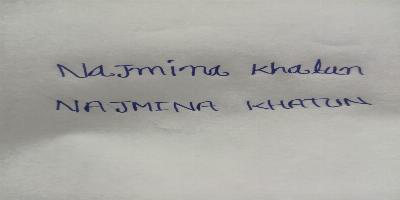 Najmina Khatun
NAJMINA KHATUN